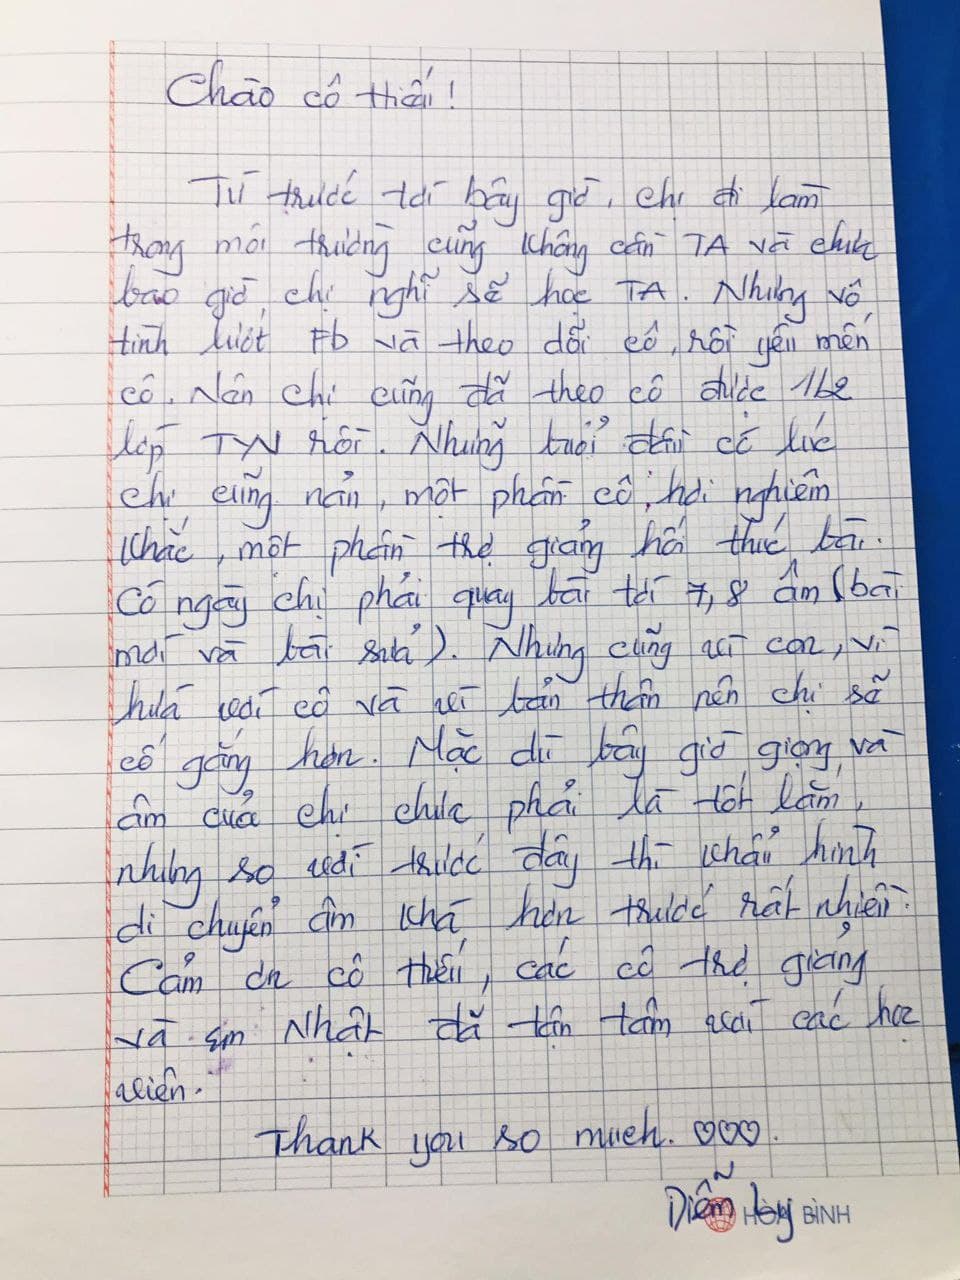 Chào cô thiếu!
Từ trước tới bây giờ, chị đi làm
trong môi trường cũng không cần TA và chưa
bao giờ chị nghĩ sẽ học TA. Nhưng vô
tình lướt Fb và theo dõi cô, rồi yêu mến
cô. Nên chị cũng đã theo cô được 1b2
lớp TYN rồi. Nhưng tuổi đâu có lúc
chị cũng nản, một phần cô hơi nghiêm
khắc, một phần trợ giảng hối thúc bài.
Có ngày chị phải quay bài tới 7, 8 âm (bài
mới và bài sửa). Nhưng cũng vì con, vì
hứa với cô và vì bản thân nên chị sẽ
cố gắng hơn. Mặc dù bây giờ giọng và
âm của chị chưa phải là tốt lắm,
nhưng so với trước đây thì khẩu hình
di chuyển âm khá hơn trước rất nhiều.
Cảm ơn cô thiếu, các cô trợ giảng
và em Nhật đã tận tâm với các học
viên.
Thank you so much. ♡♡♡.
Diễm Ly
HÒA BÌNH